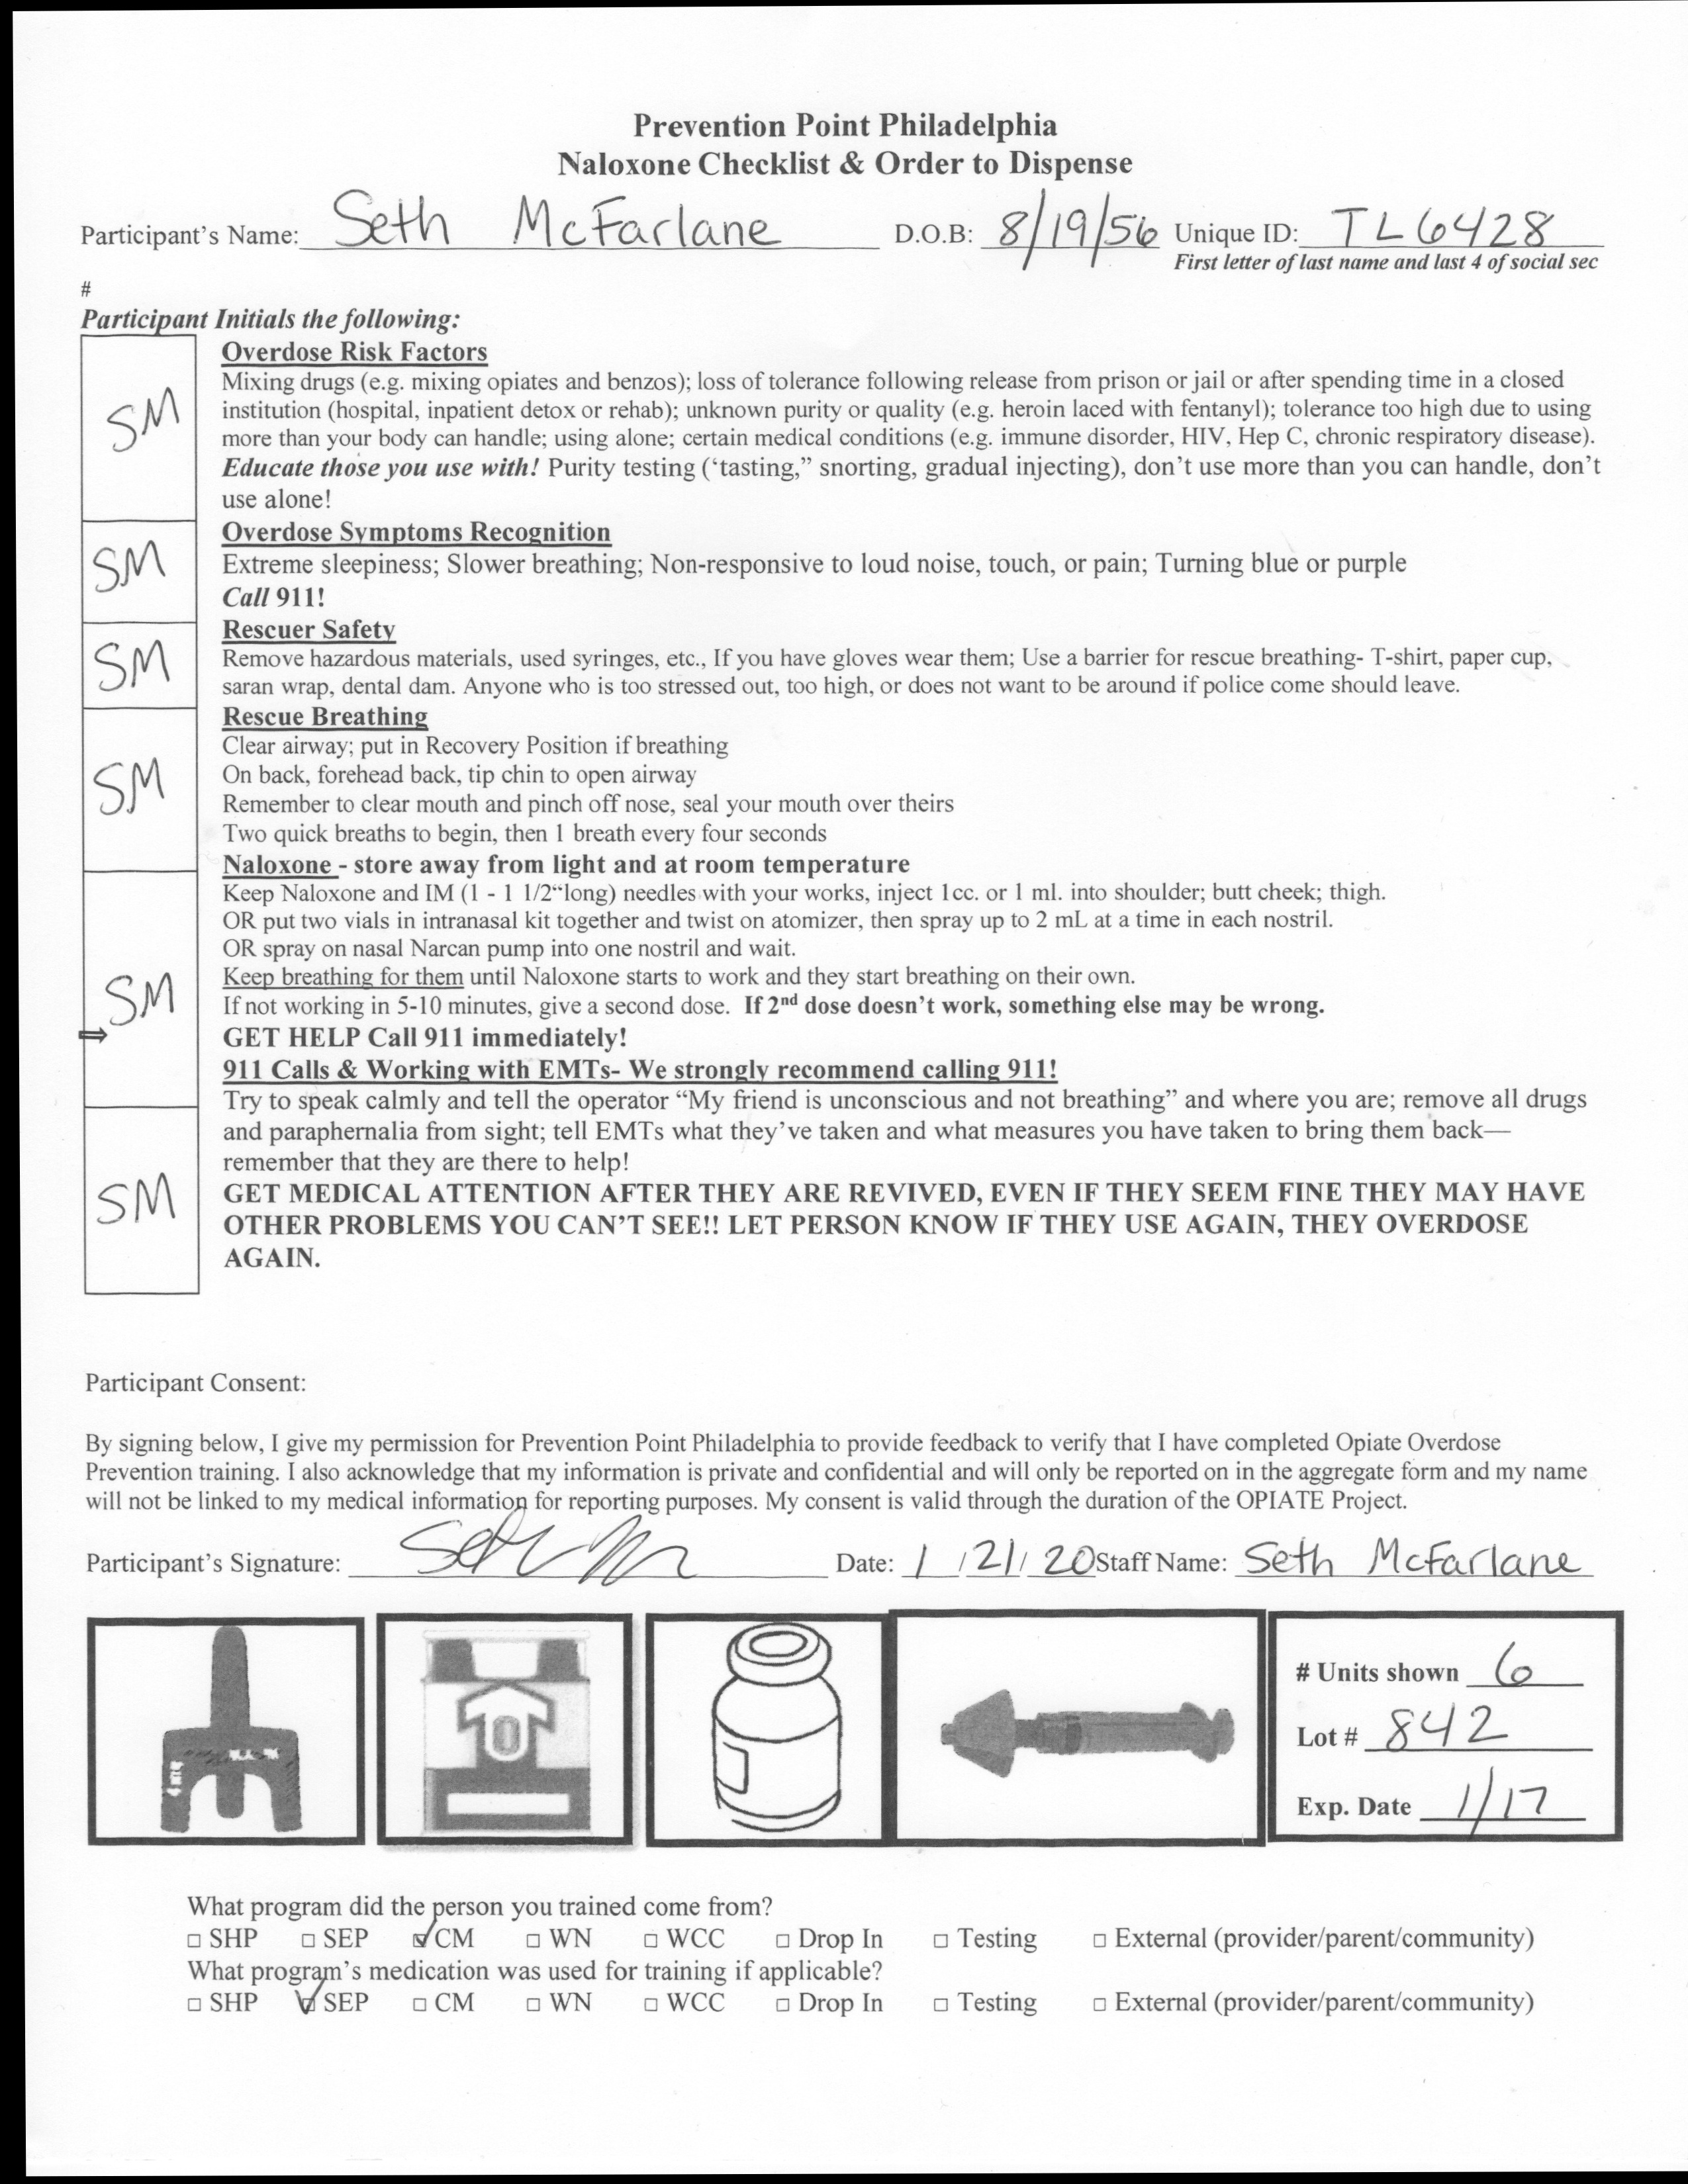 Prevention Point Philadelphia
Naloxone Checklist & Order to Dispense
Participant's Name: Seth McFarlane D.O.B: 8/19/56 Unique ID: TL6428
First letter of last name and last 4 of social sec
#
Participant Initials the following:
Overdose Risk Factors
SM Mixing drugs (e.g. mixing opiates and benzos); loss of tolerance following release from prison or jail or after spending time in a closed
institution (hospital, inpatient detox or rehab); unknown purity or quality (e.g. heroin laced with fentanyl); tolerance too high due to using
more than your body can handle; using alone; certain medical conditions (e.g. immune disorder, HIV, Hep C, chronic respiratory disease).
Educate those you use with! Purity testing (‘tasting,” snorting, gradual injecting), don't use more than you can handle, don't
use alone!
Overdose Symptoms Recognition
SM Extreme sleepiness; Slower breathing; Non-responsive to loud noise, touch, or pain; Turning blue or purple
Call 911!
Rescuer Safety
SM Remove hazardous materials, used syringes, etc., If you have gloves wear them; Use a barrier for rescue breathing- T-shirt, paper cup,
saran wrap, dental dam. Anyone who is too stressed out, too high, or does not want to be around if police come should leave.
Rescue Breathing
Clear airway; put in Recovery Position if breathing
SM On back, forehead back, tip chin to open airway
Remember to clear mouth and pinch off nose, seal your mouth over theirs
Two quick breaths to begin, then 1 breath every four seconds
Naloxone - store away from light and at room temperature
Keep Naloxone and IM (1 - 1 1/2“long) needles with your works, inject 1cc. or 1 ml. into shoulder; butt cheek; thigh.
OR put two vials in intranasal kit together and twist on atomizer, then spray up to 2 mL at a time in each nostril.
OR spray on nasal Narcan pump into one nostril and wait.
Keep breathing for them until Naloxone starts to work and they start breathing on their own.
SM If not working in 5-10 minutes, give a second dose. If 2nd dose doesn't work, something else may be wrong.
⇒ GET HELP Call 911 immediately!
911 Calls & Working with EMTs- We strongly recommend calling 911!
Try to speak calmly and tell the operator “My friend is unconscious and not breathing” and where you are; remove all drugs
and paraphernalia from sight; tell EMTs what they've taken and what measures you have taken to bring them back—
remember that they are there to help!
SM GET MEDICAL ATTENTION AFTER THEY ARE REVIVED, EVEN IF THEY SEEM FINE THEY MAY HAVE
OTHER PROBLEMS YOU CAN'T SEE!! LET PERSON KNOW IF THEY USE AGAIN, THEY OVERDOSE
AGAIN.
Participant Consent:
By signing below, I give my permission for Prevention Point Philadelphia to provide feedback to verify that I have completed Opiate Overdose
Prevention training. I also acknowledge that my information is private and confidential and will only be reported on in the aggregate form and my name
will not be linked to my medical information for reporting purposes. My consent is valid through the duration of the OPIATE Project.
Participant's Signature: Date: 1/21/20 Staff Name: Seth McFarlane
# Units shown 6
Lot # 842
Exp. Date 1/17
What program did the person you trained come from?
□ SHP □ SEP ☑ CM □ WN □ WCC □ Drop In □ Testing □ External (provider/parent/community)
What program's medication was used for training if applicable?
□ SHP ☑ SEP □ CM □ WN □ WCC □ Drop In □ Testing □ External (provider/parent/community)